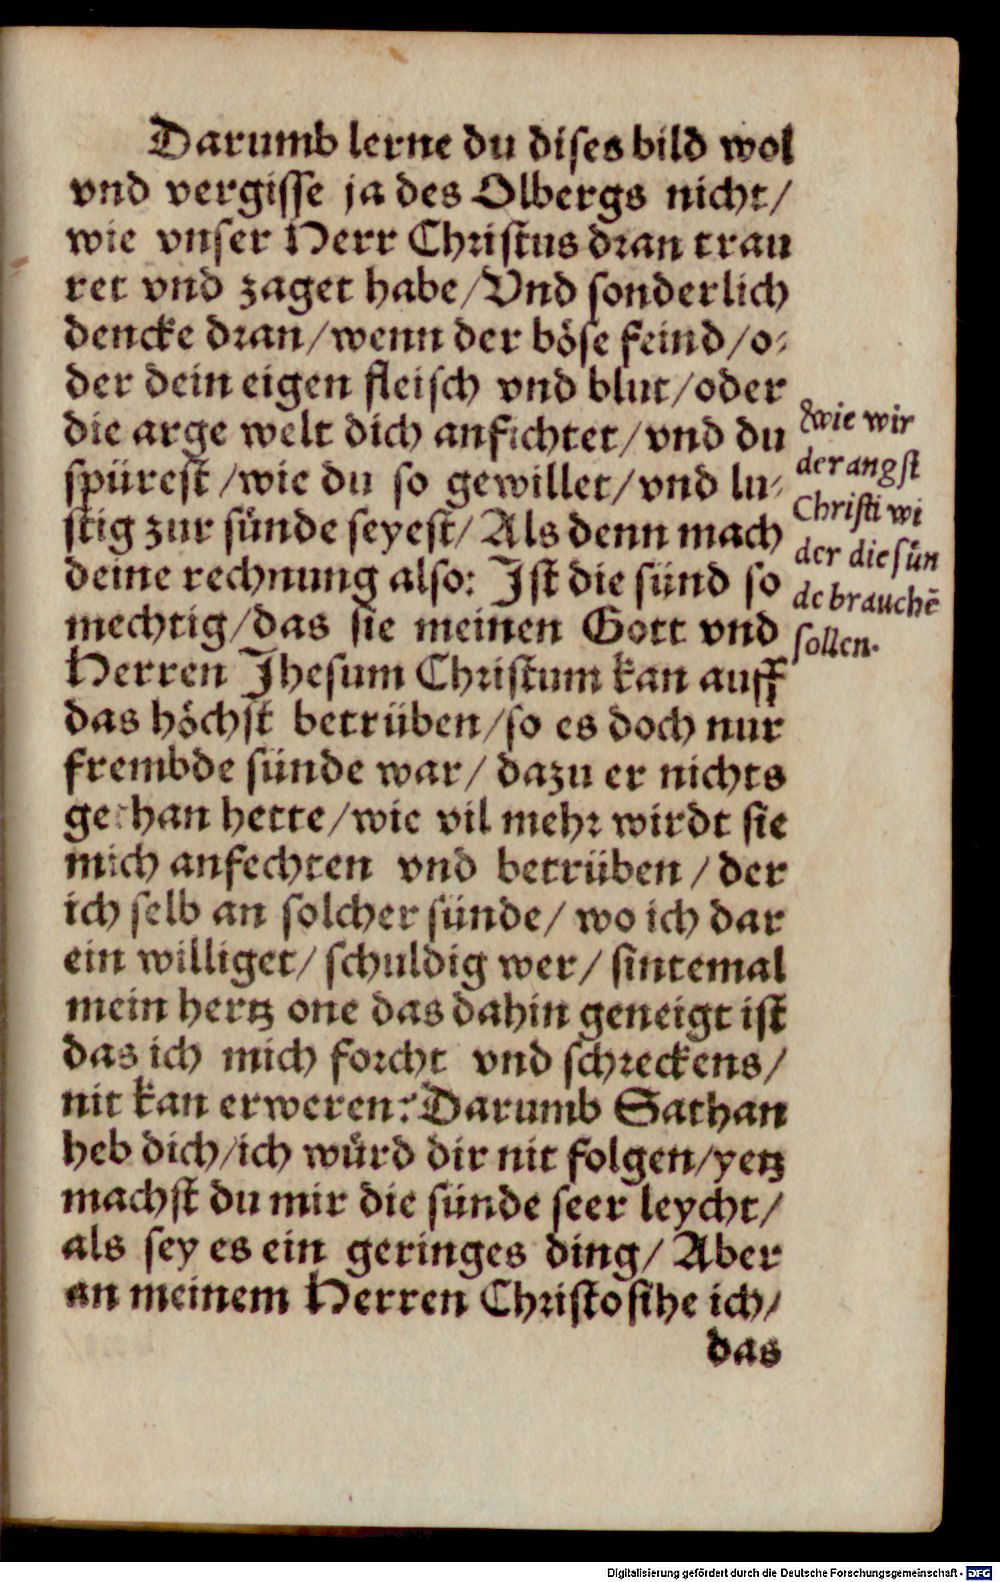 Darumb lerne du dises bild wol
vnd vergisse ja des Olbergs nicht/
wie vnser Herr Christus dran trau
ret vnd zaget habe/Vnd sonderlich
dencke dran/wenn der böse feind/o-
der dein eigen fleisch vnd blut/oder
die arge welt dich anfichtet/vnd du
spürest/wie du so gewillet/vnd lu-
stig zur sünde seyest/Als denn mach
deine rechnung also: Ist die sünd so
mechtig/das sie meinen Gott vnd
Herren Jhesum Christum kan auff
das höchst betrüben/so es doch nur
frembde sünde war/dazu er nichts
gethan hette/wie vil mehr wirdt sie
mich anfechten vnd betrüben/der
ich selb an solcher sünde/wo ich dar
ein williget/schuldig wer/sintemal
mein hertz one das dahin geneigt ist
das ich mich forcht vnd schreckens/
nit kan erweren: Darumb Sathan
heb dich/ich würd dir nit folgen/yetz
machst du mir die sünde seer leycht/
als sey es ein geringes ding/Aber
an meinem Herren Christo sihe ich/
das
wie wir
der angst
Christi wi
der die sün
de brauchē
sollen.
Digitalisierung gefördert durch die Deutsche Forschungsgemeinschaft - DFG